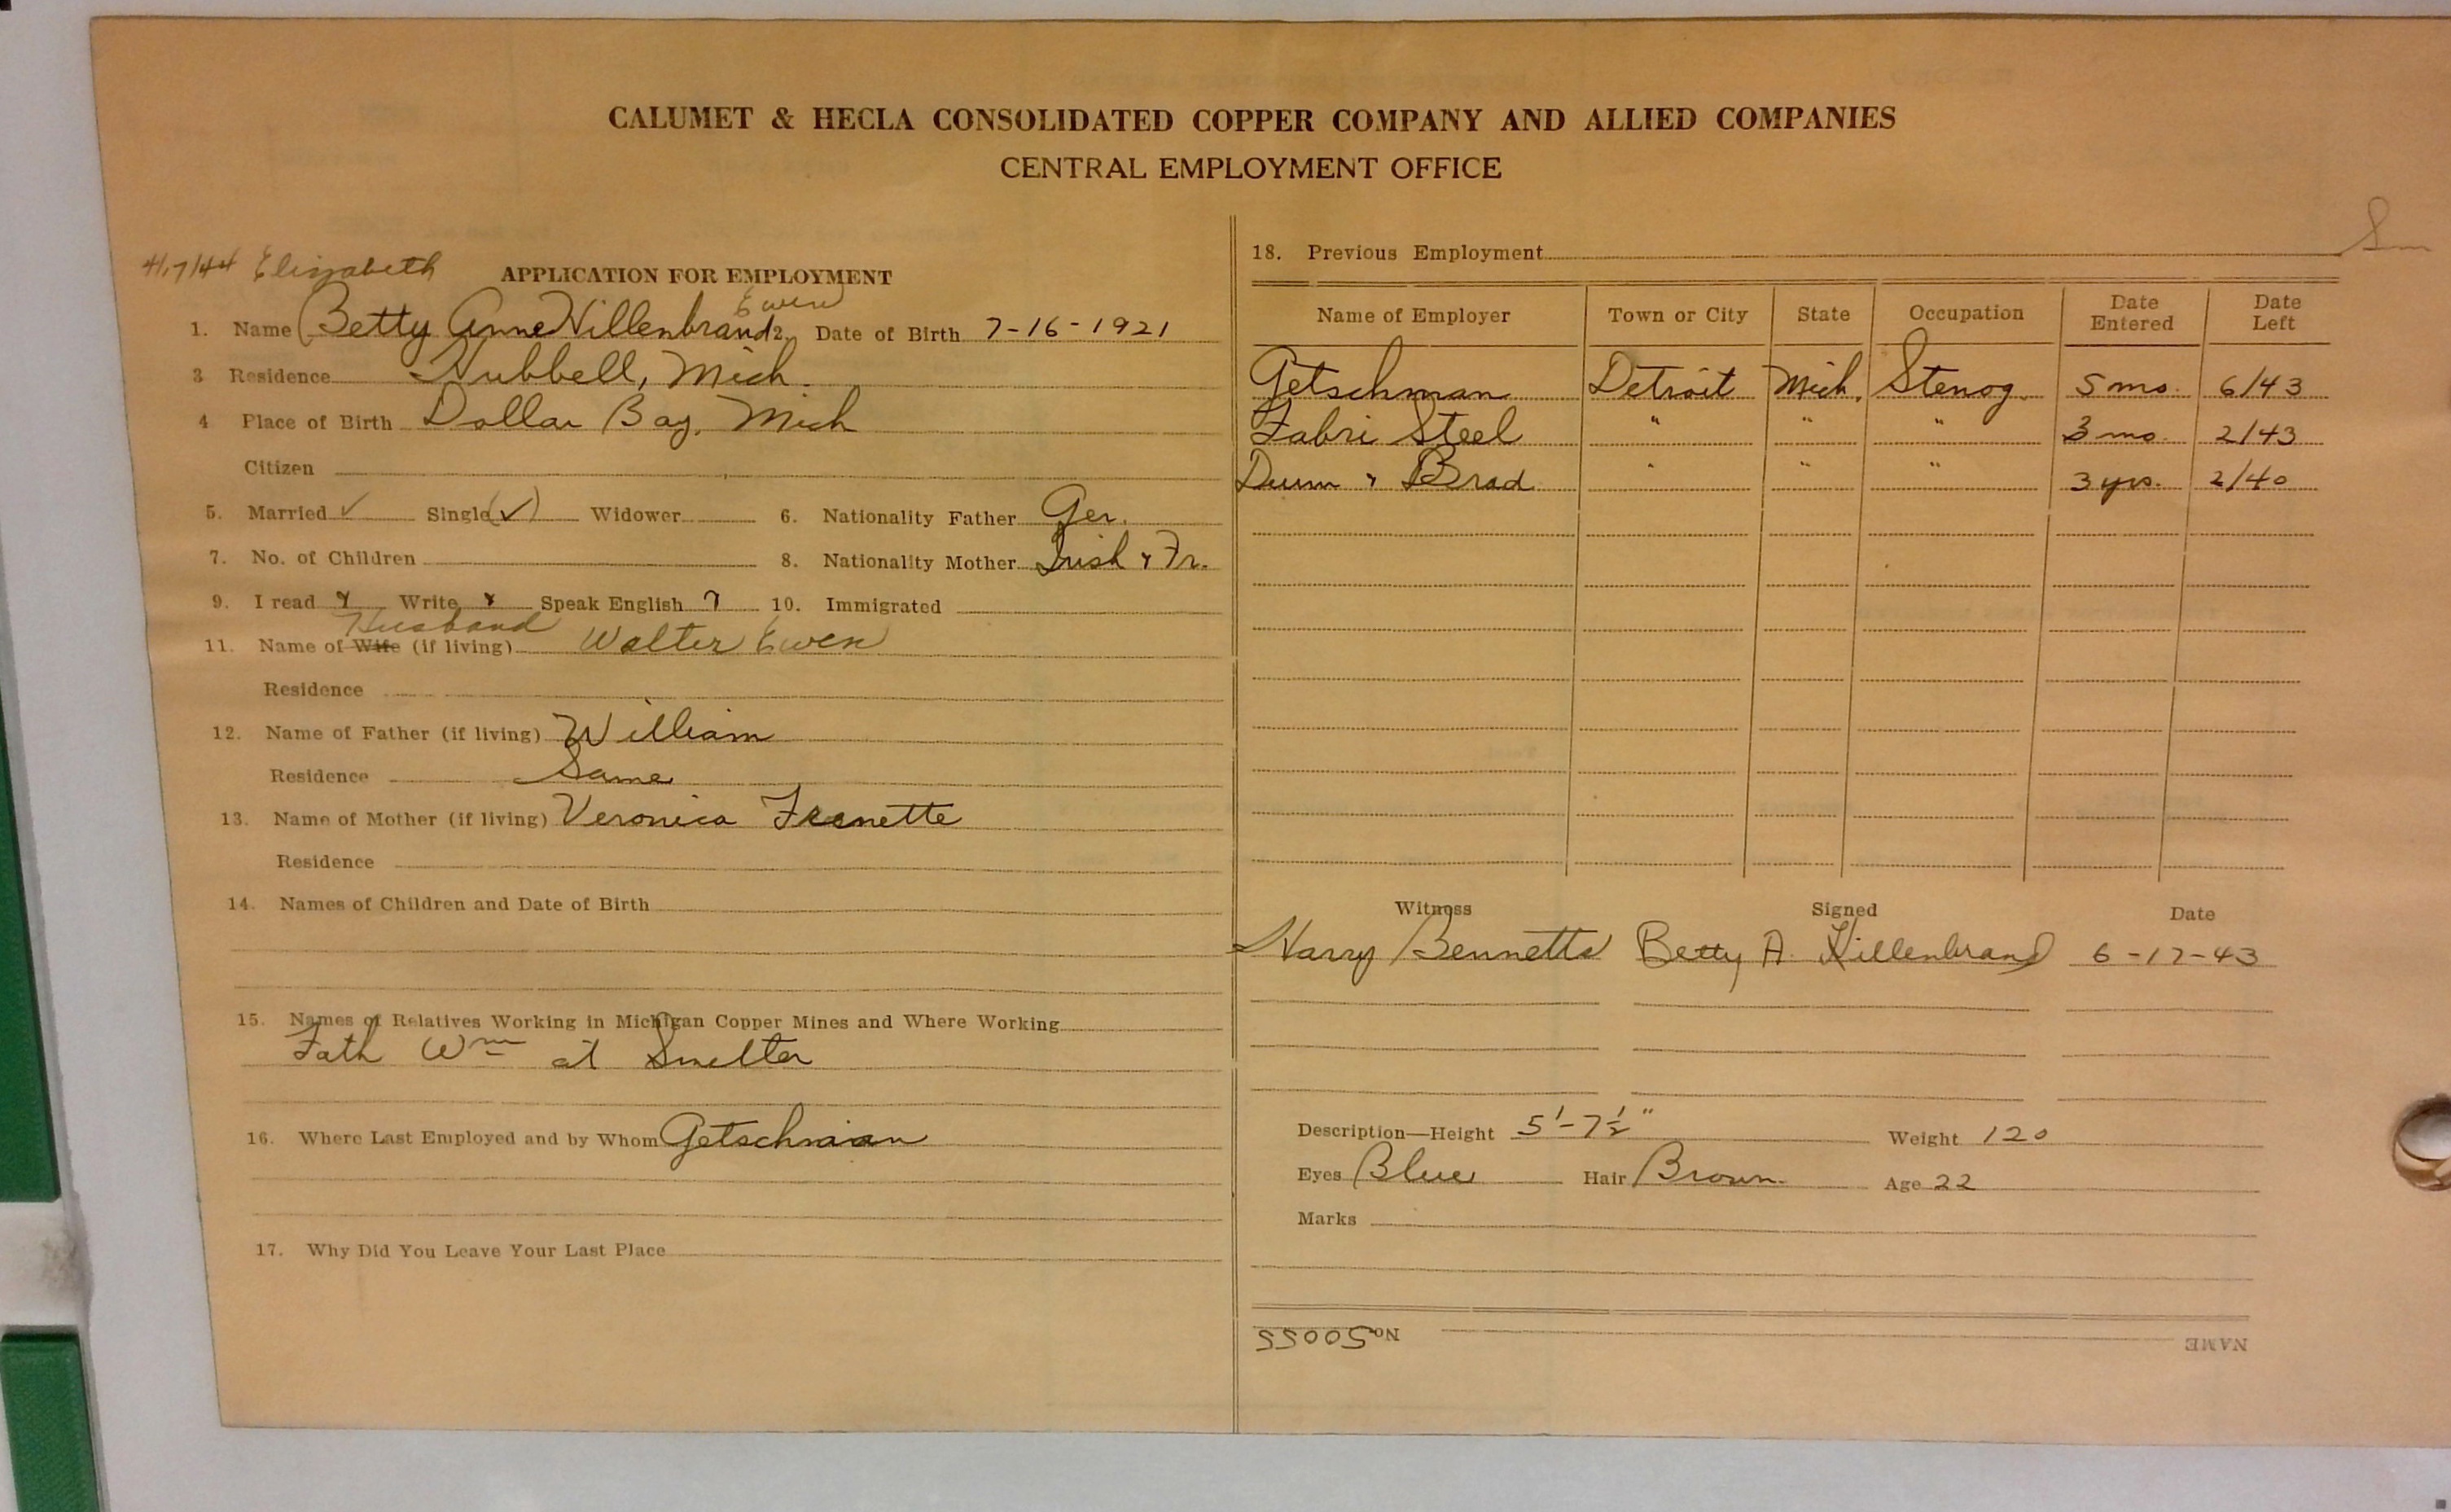 CALUMET & HECLA CONSOLIDATED COPPER COMPANY AND ALLIED COMPANIES
CENTRAL EMPLOYMENT OFFICE
4/17/44 Elizabeth
APPLICATION FOR EMPLOYMENT
Ewen
1. Name (Betty Anne Hillenbrand 2. Date of Birth 7-16-1921
3 Residence Hubbell, Mich.
4 Place of Birth Dollar Bay, Mich
Citizen
5. Married ✓ Single (✓) Widower 6. Nationality Father Ger.
7. No. of Children 8. Nationality Mother Irish & Fr.
9. I read Write Speak English 10. Immigrated
Husband
11. Name of Wife (if living) Walter Ewen
Residence
12. Name of Father (if living) William
Residence Same
13. Name of Mother (if living) Veronica Frenette
Residence
14. Names of Children and Date of Birth
15. Names of Relatives Working in Michigan Copper Mines and Where Working
Fath Wm at Smelter
16. Where Last Employed and by Whom Getschman
17. Why Did You Leave Your Last Place
18. Previous Employment
Sm
Name of Employer Town or City State Occupation Date Entered Date Left
Getschman Detroit Mich. Stenog. 5 mo. 6/43
Fabri Steel " " " 3 mo. 2/43
Dunn & Brad " " " 3 yrs. 2/40
Witness Signed Date
Harry Bennetts Betty A. Hillenbrand 6-17-43
Description—Height 5'-7½" Weight 120
Eyes Blue Hair Brown Age 22
Marks
NAME No. 50055